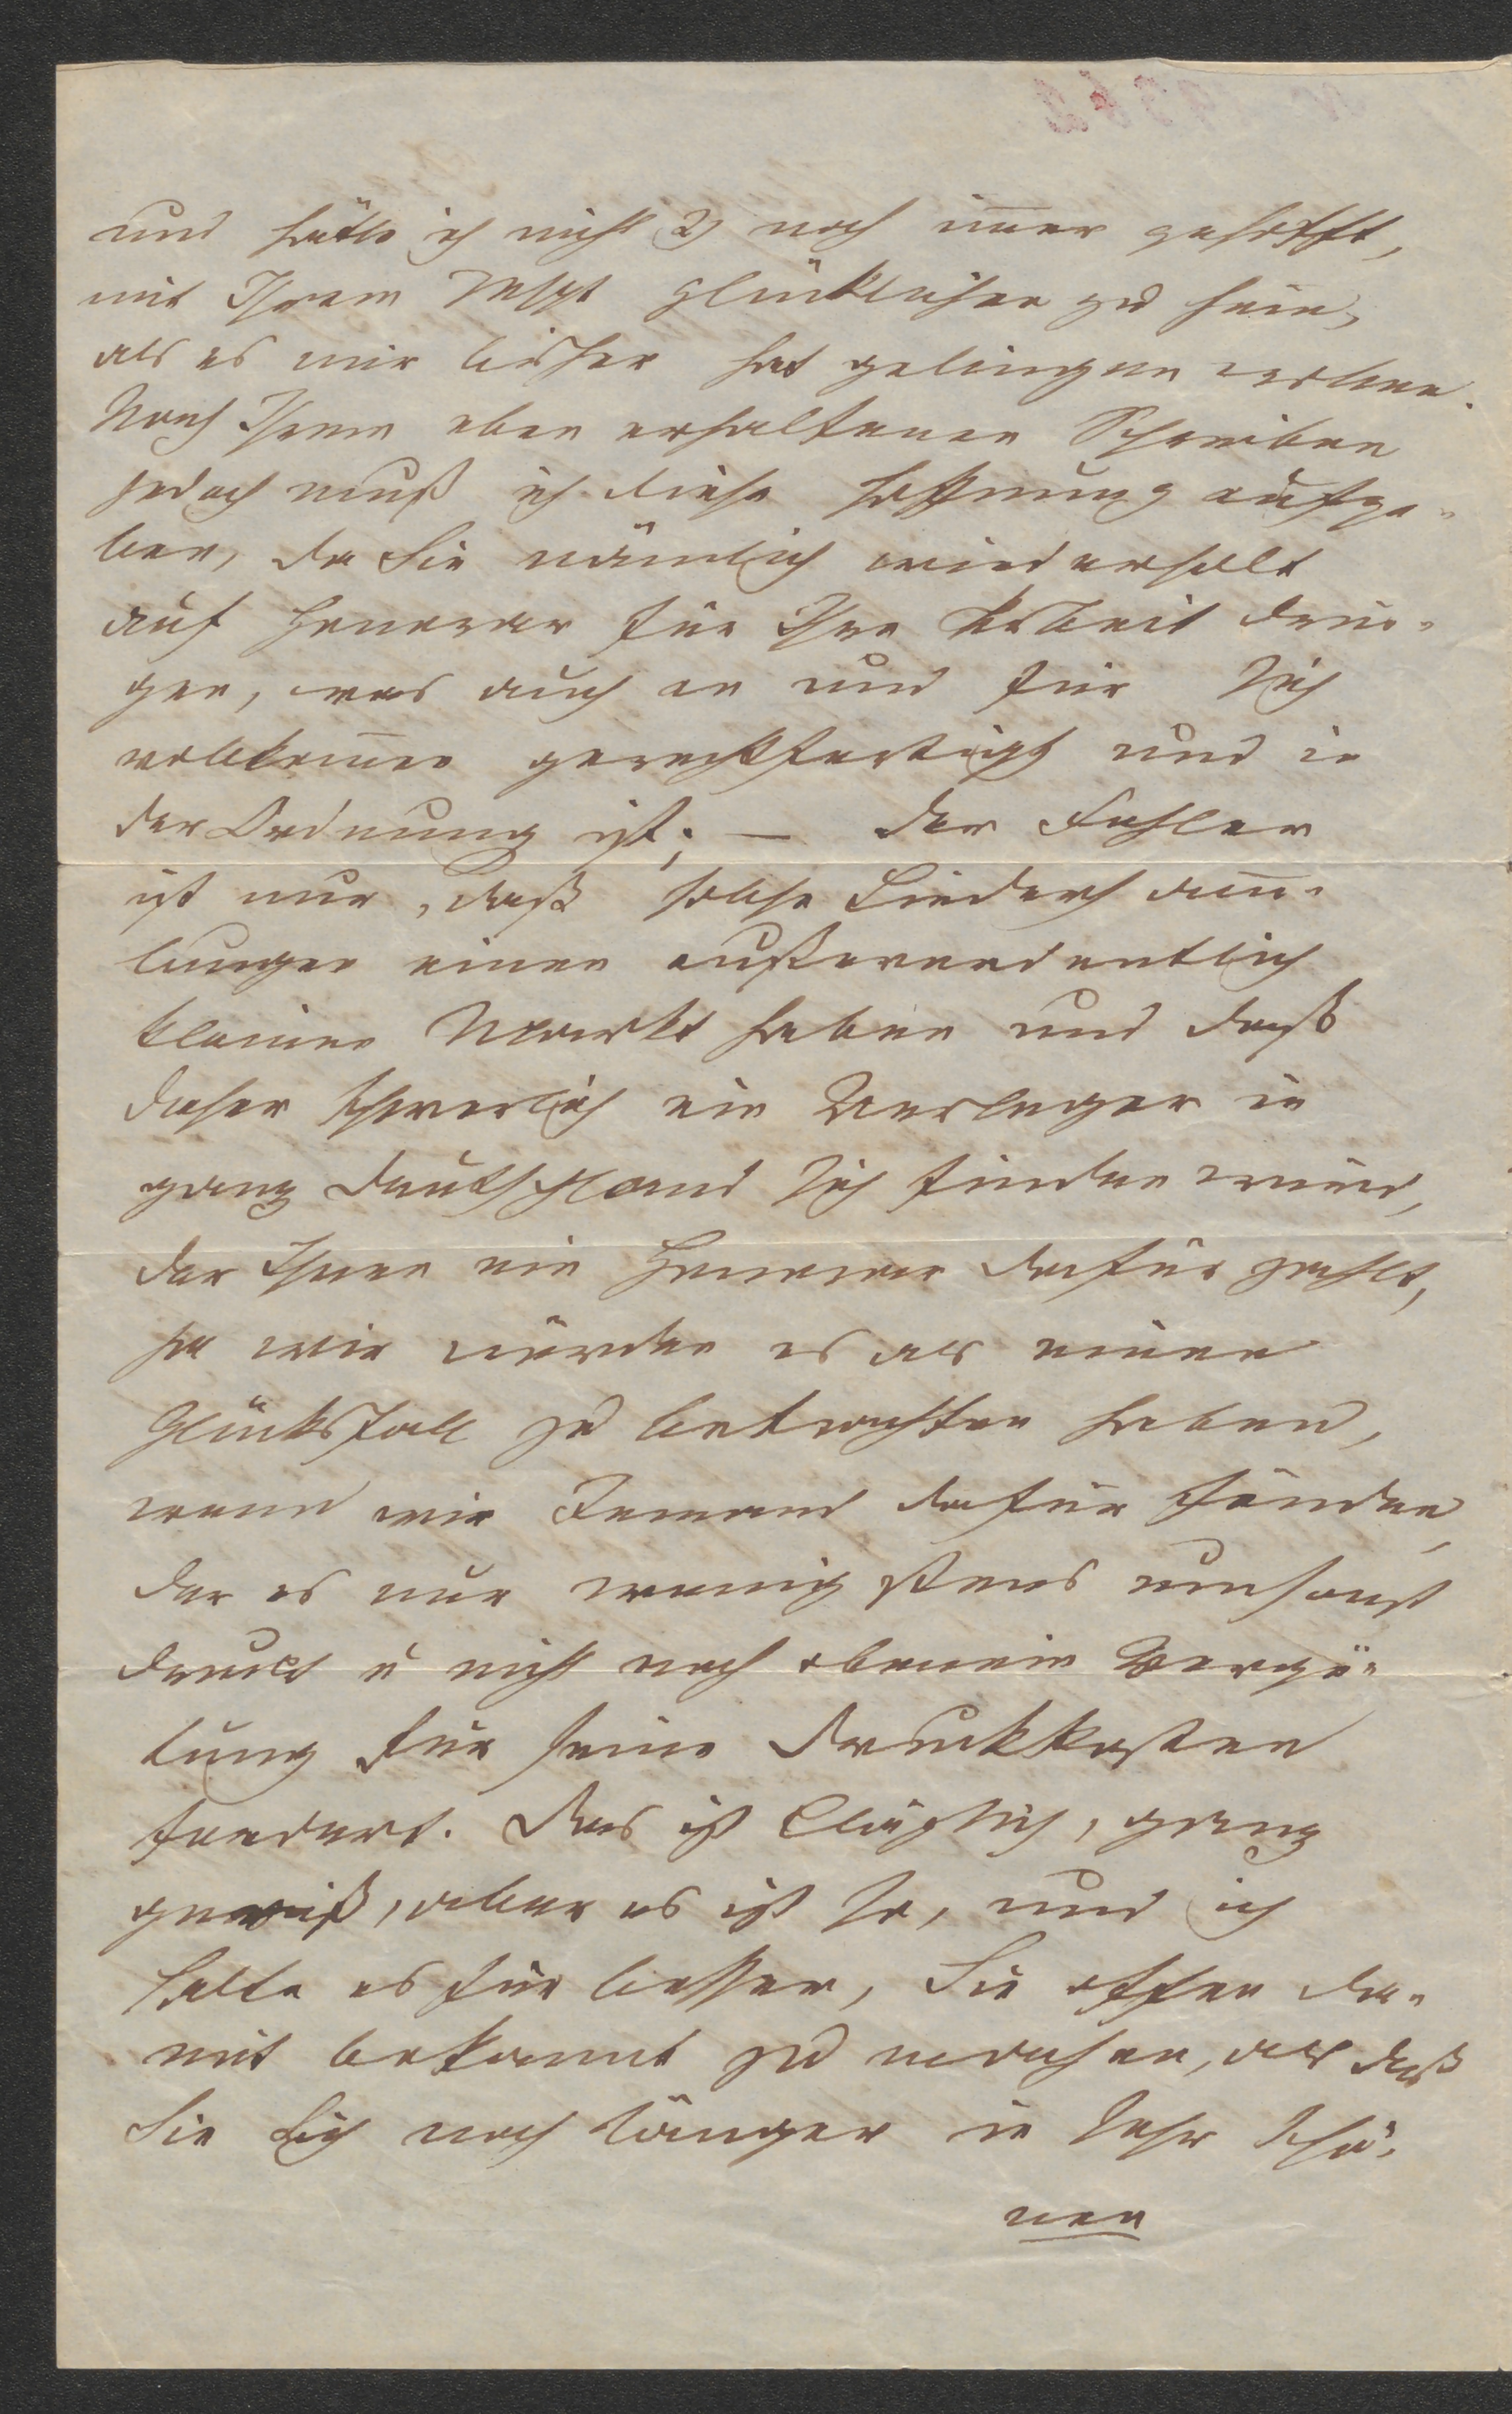 und hätte ich nicht 2) noch im̅er gehofft,
mit Ihrem Mspt glücklicher zu sein,
als es mir bisher hat gelingen wollen.
Nach Ihrem eben erhaltenen Schreiben
jedoch muß ich diese Hoffnung aufge-
ben, da Sie nämlich wiederholt
auf Honorar für Ihre Arbeit drin-
gen, was auch an und für sich
vollkom̅en gerechtfertigt und in
der Ordnung ist; — der Fehler
ist nur, daß solche Liedersam̅-
lungen einen außerordentlich
kleinen Markt haben und daß
daher schwerlich ein Verleger in
ganz Deutschland sich finden wird,
der Ihnen ein Honorar dafür zahlt,
ja wir würden es als einen
Glücksfall zu betrachten haben,
wenn wir Jemand dafür fänden,
der es nur wenigstens umsonst
druckt u nicht noch obenein Vergü-
tung für seine Druckkosten
fordert. Das ist kläglich, ganz
gewiß, aber es ist so, und ich
halte es für besser, Sie offen da-
mit bekannt zu machen, als daß
Sie sich noch länger in sehr schö-
nen